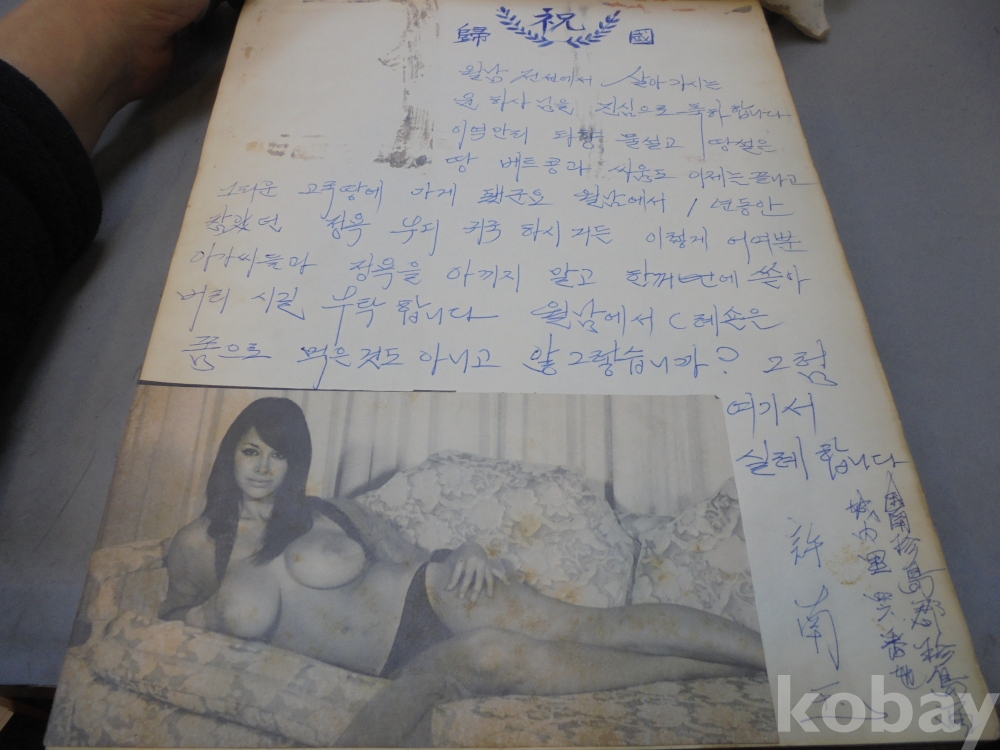 祝
歸 國
월남 전선에서 살아가시는
윤 하사님을 진심으로 축하합니다
이역만리 타향 물설고 땅설은
땅 베트콩과 싸움도 이제는 끝나고
그리운 고국땅에 가게 됐군요 월남에서 1년동안
참았던 정욕 부디 귀국 하시거든 이렇게 어여쁜
아가씨들과 정욕을 아끼지 말고 한꺼번에 쏟아
버리시길 부탁합니다 월남에서 C레숀은
폼으로 먹은것도 아니고 앟그렇습니까? 그럼
여기서
실례합니다
全南珍島郡珍島面
城内里 番地
許南
kobay